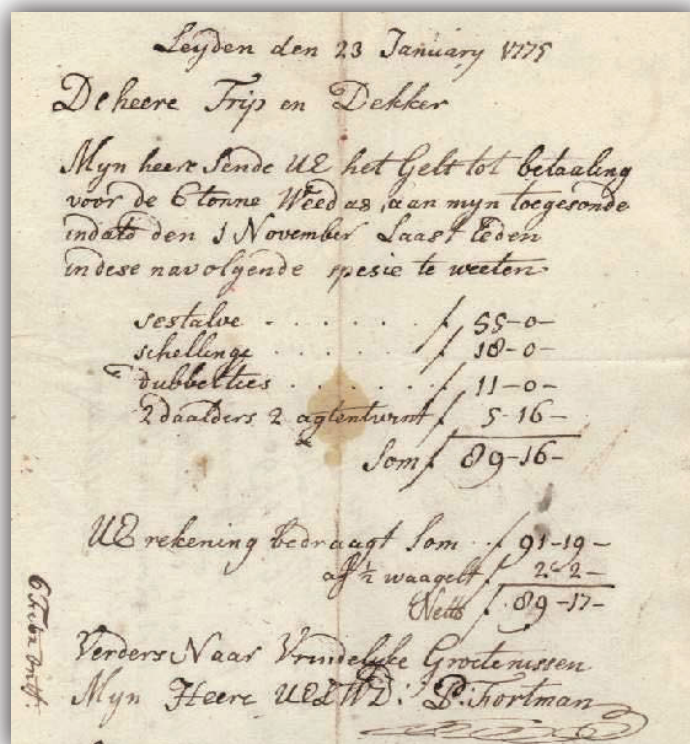 Leyden den 23 January 1775
De heere Trip en Dekker
Myn heere Sende UE het Gelt tot betaaling
voor de 6 tonne Weedas, aan myn toegesonde
indato den 1 November Laast Leden
in dese navolgende spesie te weeten
sestalve . . . . . . ƒ 55-0-
schellinge . . . . . ƒ 18-0-
dubbelties . . . . . . ƒ 11-0-
2 daalders 2 agtentwint ƒ 5-16-
Som ƒ 89-16-
UE rekening bedraagt Som . ƒ 91-19-
af ½ waagelt ƒ 2-2-
Netto ƒ 89-17-
Verders Naar Vrindelyke Groetenissen
Myn Heere UEDWD: P: Fortman